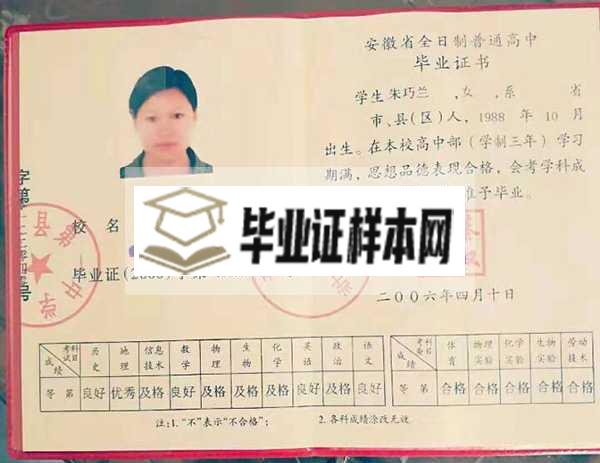 安徽省全日制普通高中
毕业证书
学生 朱巧兰 ,女 ,系 省
市、县(区)人，1988 年 10 月
出生。在本校高中部（学制三年）学习
期满，思想品德表现合格，会考学科成
予毕业。
校 名
毕业证样本网
毕业证(
二〇〇六年四月十日
字第
号
县第一中学
考试科目 历史 地理 信息技术 数学 物理 生物 化学 英语 政治 语文
成绩 等第 良好 优秀 及格 良好 及格 及格 及格 良好 良好 良好
考查科目 体育 物理实验 化学实验 生物实验 劳动技术
成绩 等第 合格 合格 合格 合格 合格
注:1."不"表示"不合格"; 2.各科成绩涂改无效